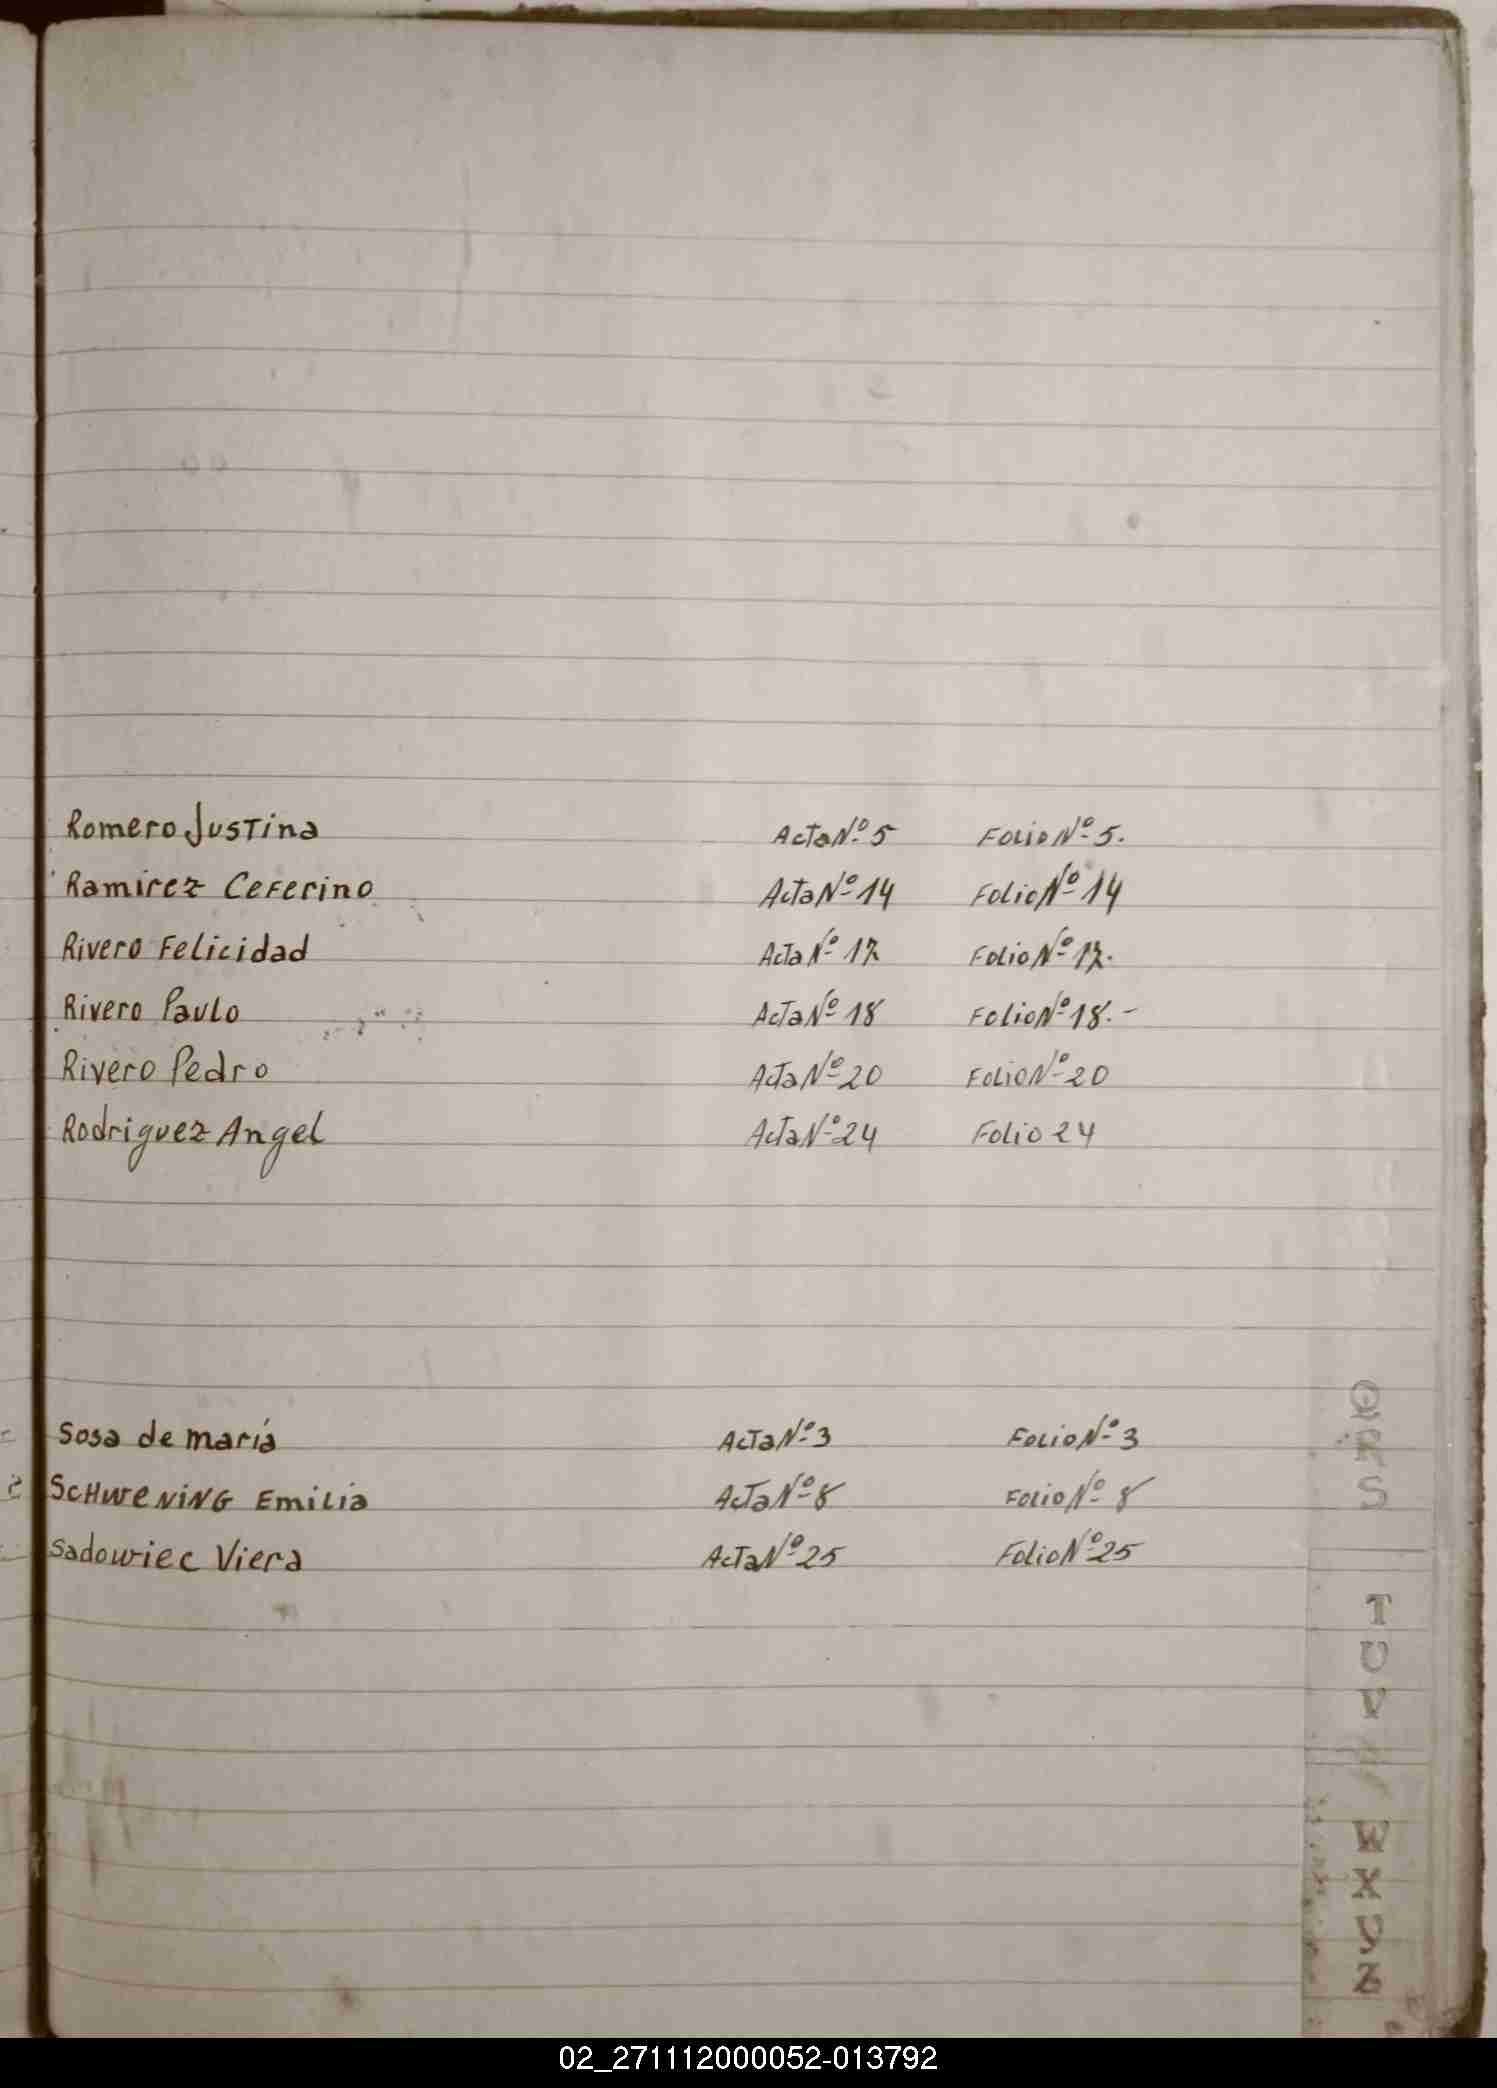 Romero Justina Acta Nº 5 Folio Nº 5.
Ramirez Ceferino Acta Nº 14 Folio Nº 14
Rivero Felicidad Acta Nº 17 Folio Nº 17.
Rivero Paulo Acta Nº 18 Folio Nº 18.-
Rivero Pedro Acta Nº 20 Folio Nº 20
Rodriguez Angel Acta Nº 24 Folio 24
Sosa de maría Acta Nº 3 Folio Nº 3
SCHweNiNG Emilia Acta Nº 8 Folio Nº 8
Sadowiec Viera Acta Nº 25 Folio Nº 25
Q
R
S
T
U
V
W
X
Y
Z
02_271112000052-013792